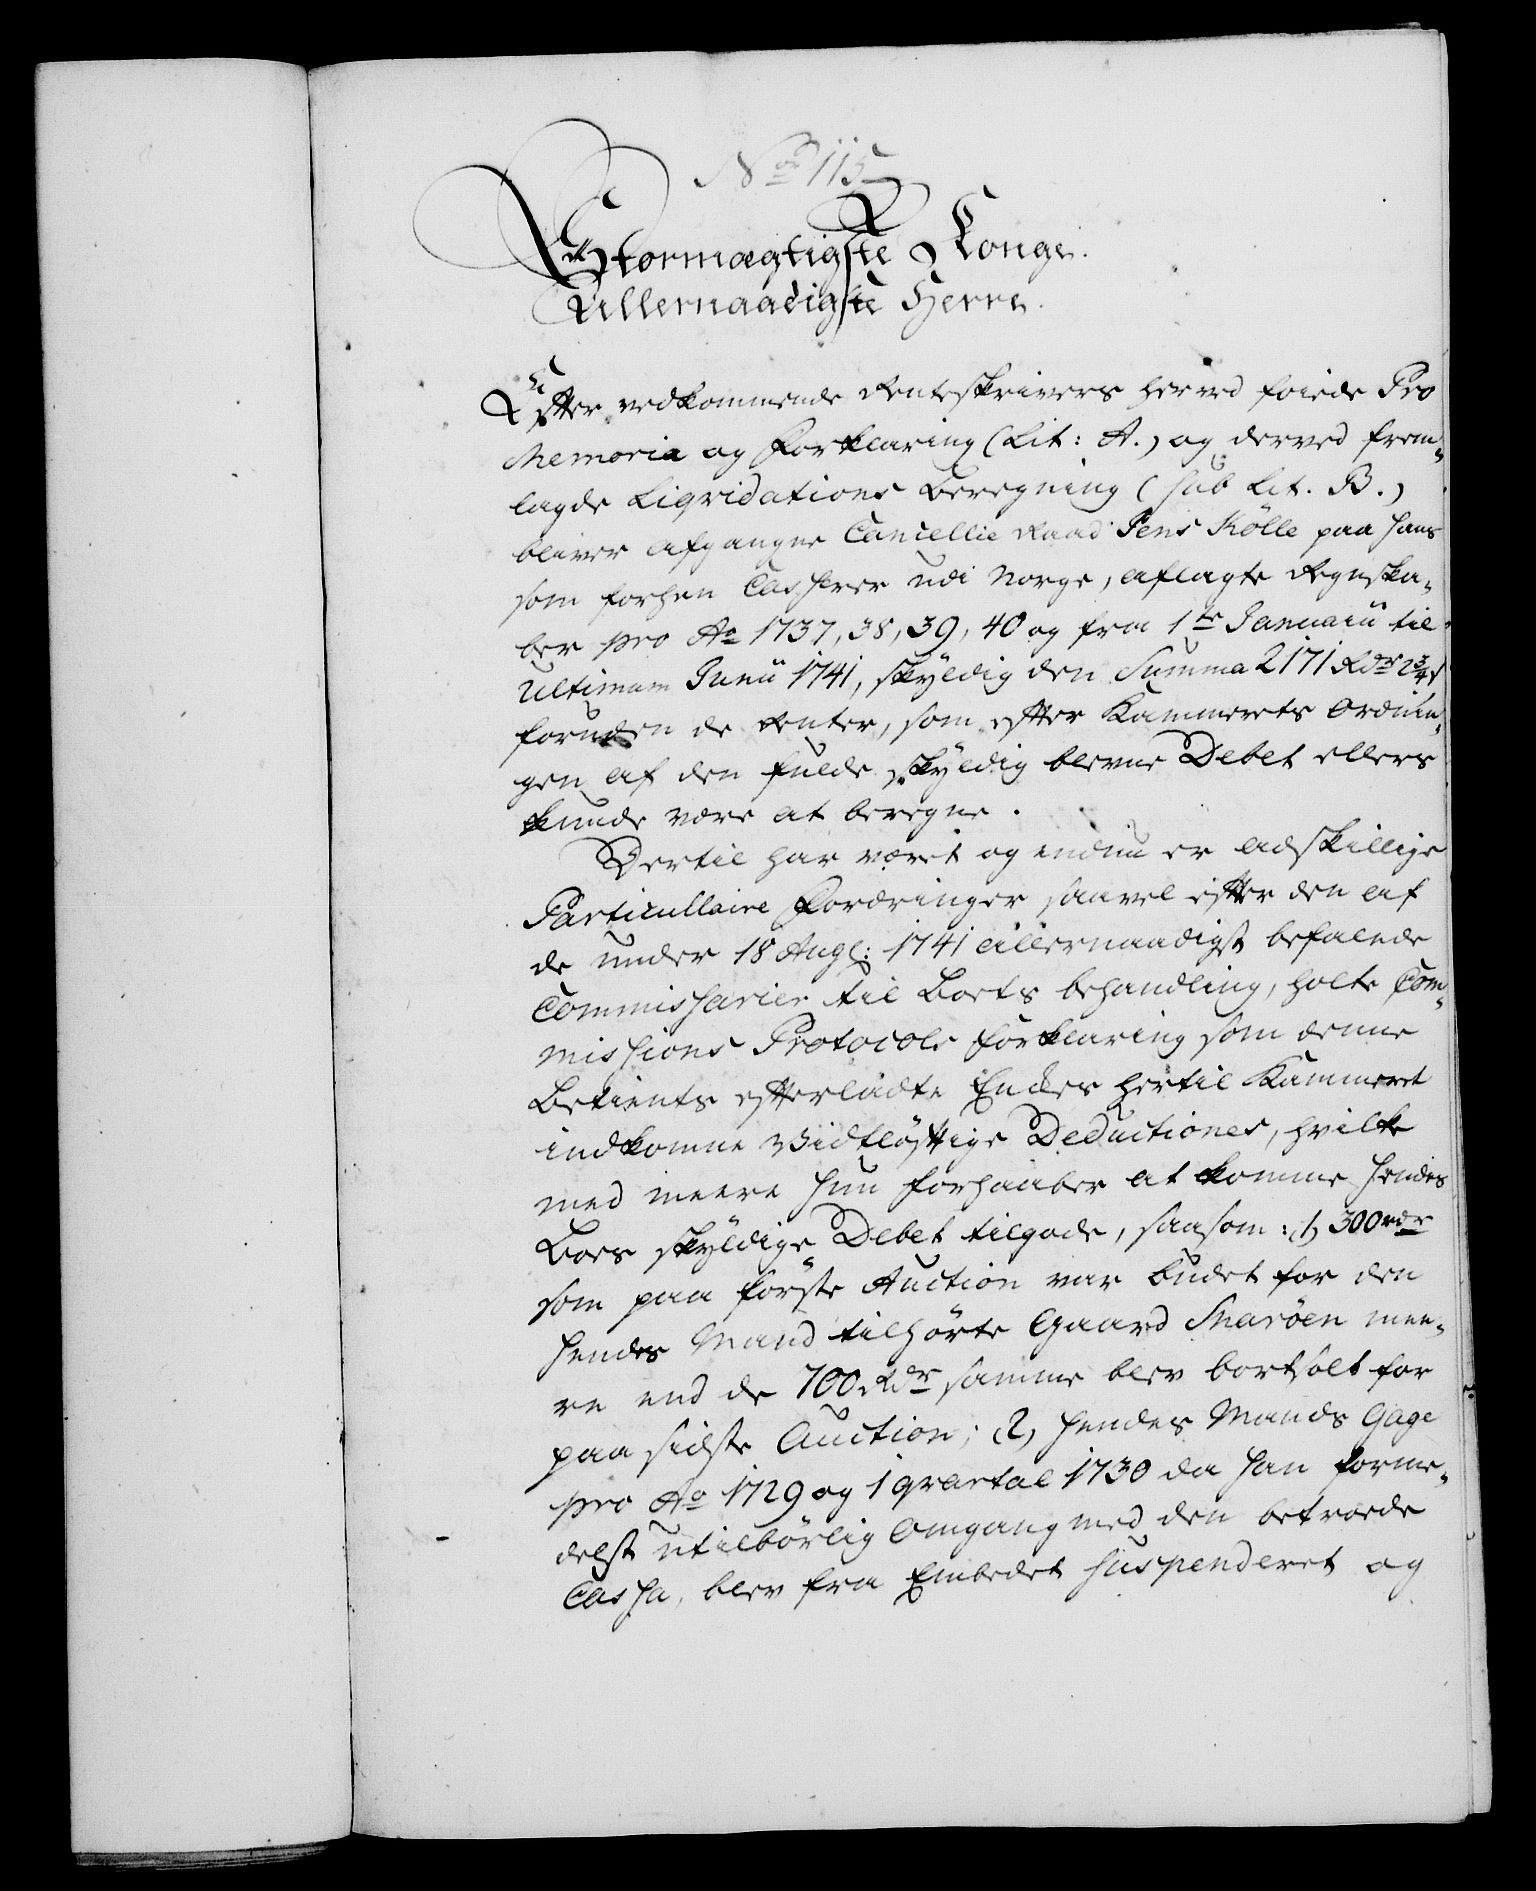 No 115
Stormægtigste Konge.
Allernaadigste Herre.
Efter vedkommende Renteskrivers herved föiede Pro
Memoria og Forklaring (Lit: A.) og derved frem„
lagde Liqvidations Beregning (sub Lit. B.)
bliver afgangne Cancellie Raad Jens Kölle paa hans
som forhen Casserer udi Norge, aflagte Regnska„
ber pro Ao 1737, 38, 39, 40 og fra 1te Januarii til
Ultimam Junii 1741, skyldig den Summa 2171 Rdr 2¾ s
foruden de Renter, som efter Kammerets Ordnin„
gen af den fulde skyldig blevne Debet ellers
kunde være at beregne.
Dertil har været og endnu er adskillige
Particullaire Fordringer saavel efter den af
de under 18 Aug: 1741 allernaadigst befalede
Commissarier til Boets behandling, holte Com„
missions Protocols forklaring som denne
Betients efterladte Enkes hertil Kammeret
indkomne vidtløftige Deductioner, hvilke
med meere hun forhaaber at komme hendes
Boes skyldige Debet tilgode, saasom: 1) 300 rdr
som paa förste Auction var budet for den
hendes Mand tilhörte Gaard Snaröen mee„
re end de 700 Rdr samme blev bortsolt for
paa sidste Auction; 2) hendes Mands Gage
pro Ao 1729 og 1 qvartal 1730 da han forme„
delst utilbörlig Omgang med den betroede
Cassa, blev fra Embedet suspenderet og